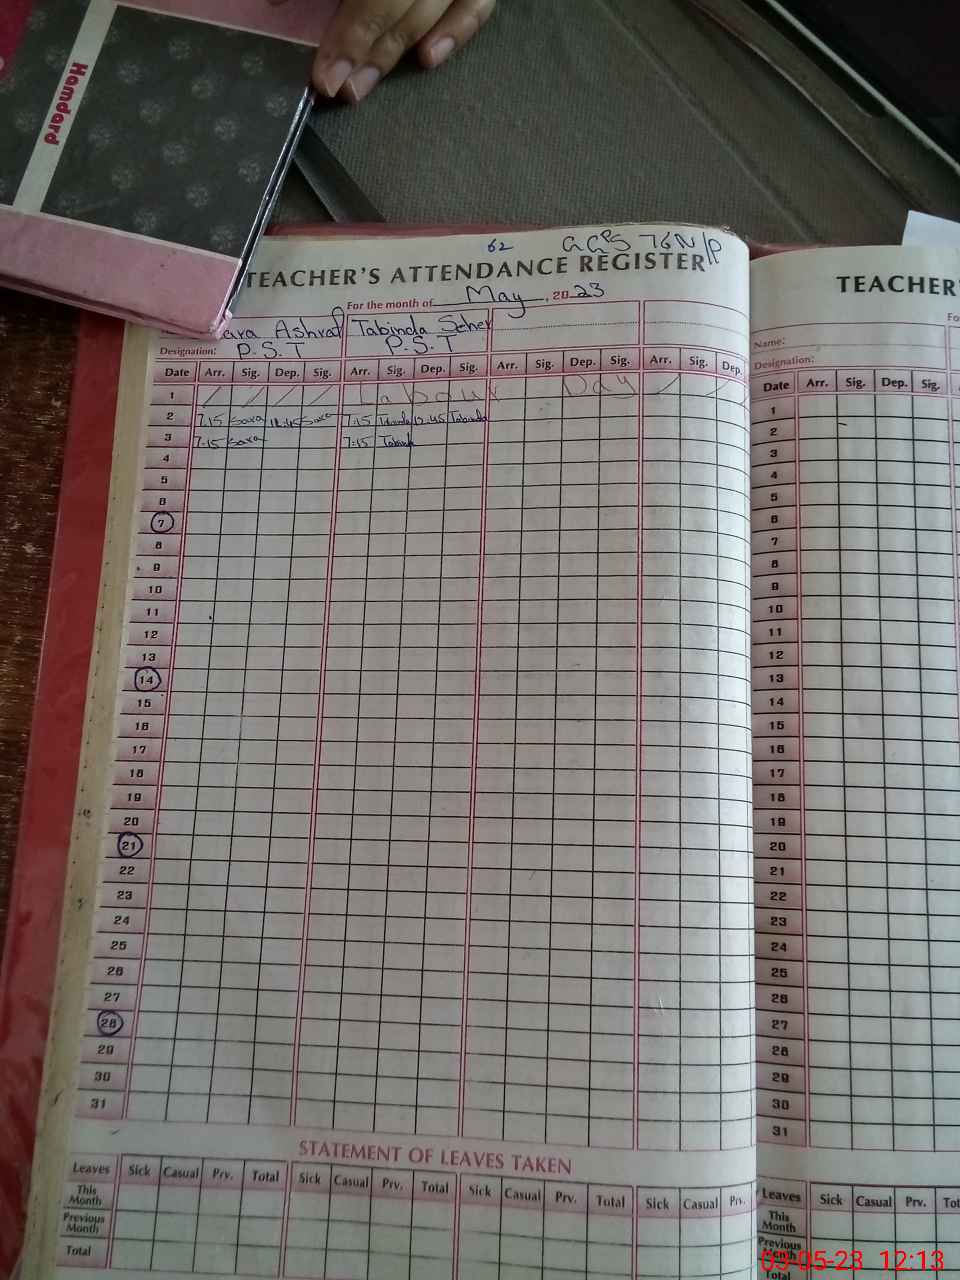 Hamdard
62 GGPS 76 N/P
TEACHER'S ATTENDANCE REGISTER
For the month of May, 2023
ara Ashraf Tabinda Seher
Designation: P.S.T P.S.T
Date Arr. Sig. Dep. Sig. Arr. Sig. Dep. Sig. Arr. Sig. Dep. Sig. Arr. Sig. Dep.
1 Labour Day
2 7.15 Sara 12:45 Sara 7:15 Tabinda 12:45 Tabinda
3 7:15 Sara 7:15 Tabinda
4
5
6
7
8
9
10
11
12
13
14
15
16
17
18
19
20
21
22
23
24
25
26
27
28
29
30
31
STATEMENT OF LEAVES TAKEN
Leaves Sick Casual Prv. Total Sick Casual Prv. Total Sick Casual Prv. Total Sick Casual Prv.
This Month
Previous Month
Total
TEACHER'
Fo
Name:
Designation:
Date Arr. Sig. Dep. Sig.
1
2
3
4
5
6
7
8
9
10
11
12
13
14
15
16
17
18
19
20
21
22
23
24
25
26
27
28
29
30
31
Leaves Sick Casual Prv. Tot
This Month
Previous Month
Total
03-05-23 12:13